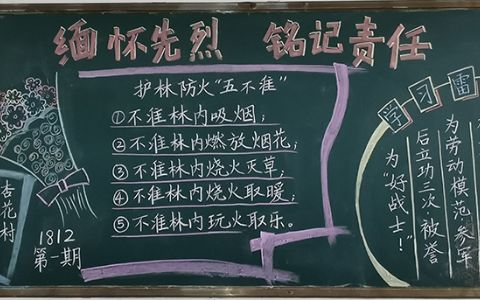 缅怀先烈 铭记责任
护林防火"五不准"
①不准林内吸烟;
②不准林内燃放烟花;
③不准林内烧火灭草;
④不准林内烧火取暖;
⑤不准林内玩火取乐。
杏花村
1812
第一期
学习雷
为劳动模范参军
后立功三次被誉
为"好战士!"